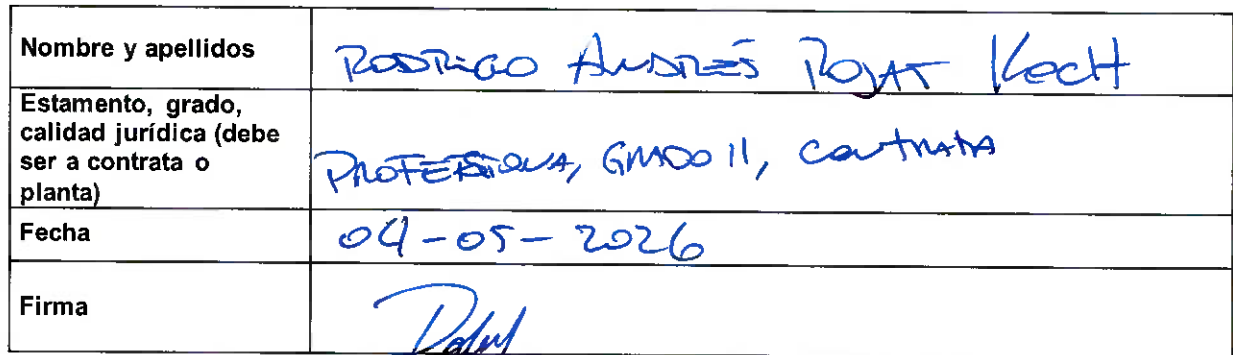 Nombre y apellidos
RODRIGO ANDRÉS ROJAS KOCH
Estamento, grado,
calidad jurídica (debe
ser a contrata o
planta)
PROFESIONAL, GRADO 11, CONTRATA
Fecha
04-05-2026
Firma